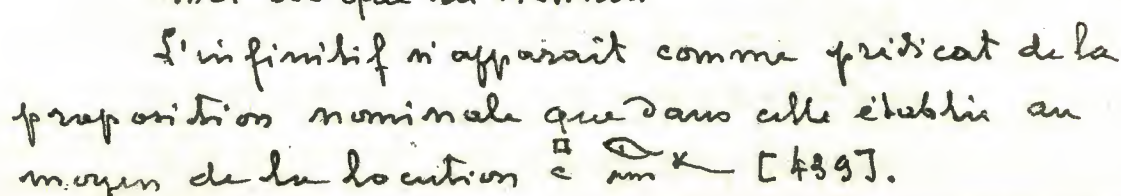 que
L'infinitif n'apparaît comme prédicat de la
proposition nominale que dans celle établie au
moyen de la locution 𓊪𓏲 𓁹𓈖 𓆑 [439].